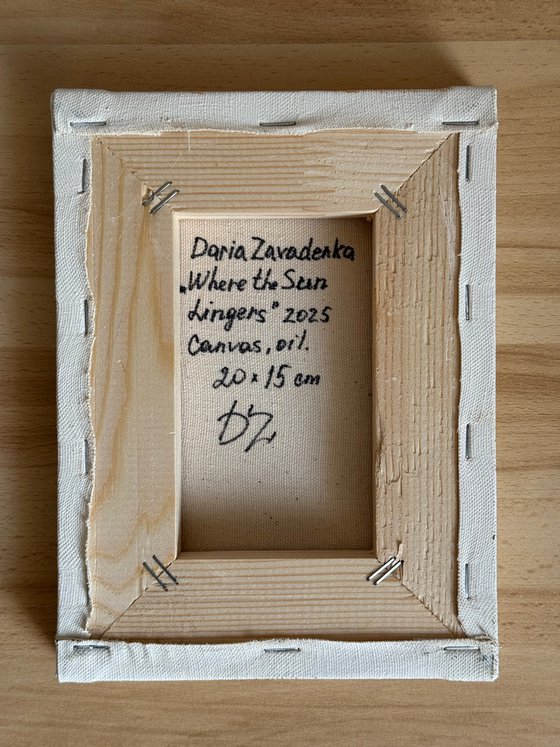 Daria Zavadenka
„Where the Sun
Lingers" 2025
Canvas, oil.
20 x 15 cm
DZ